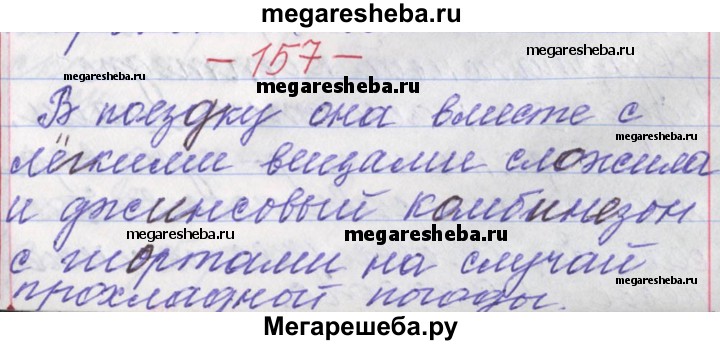 megaresheba.ru
- 157 -
megaresheba.ru
megaresheba.ru
megaresheba.ru
В поездку она вместе с
megaresheba.ru
лёгкими вещами сложила
и джинсовый комбинезон
megaresheba.ru
megaresheba.ru
с шортами на случай
прохладной погоды.
megaresheba.ru
Мегарешеба.ру